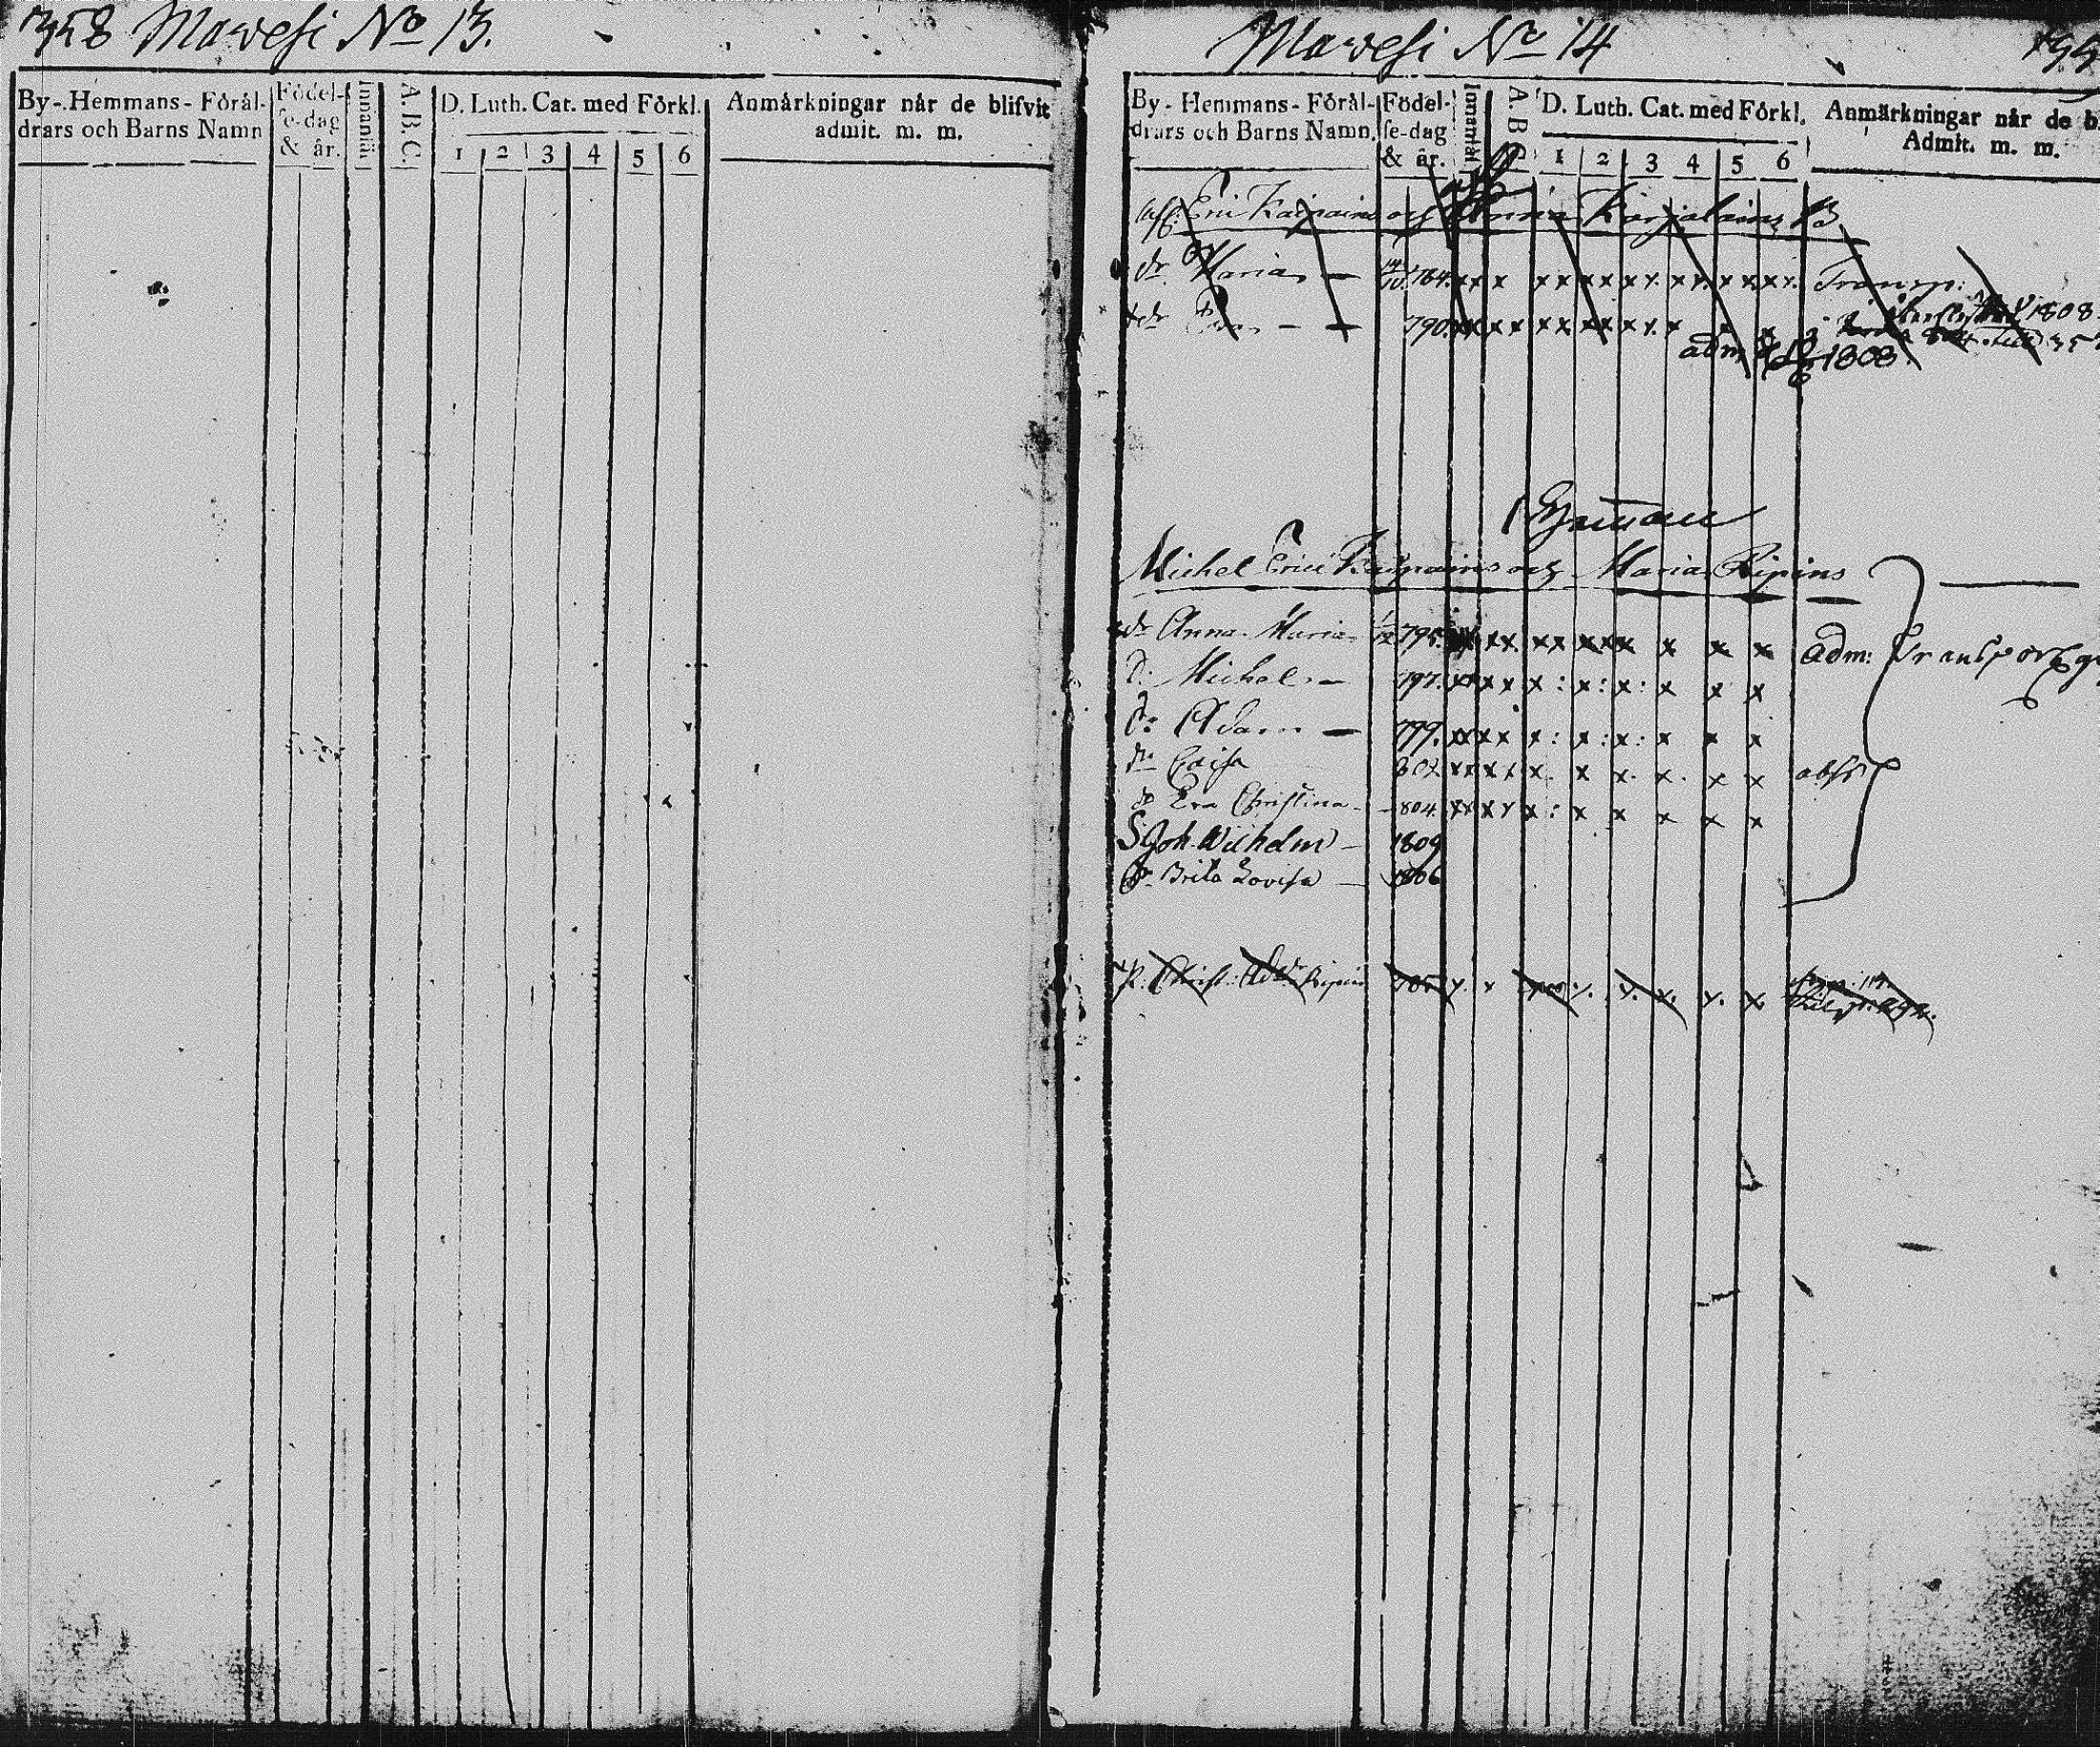 358 Mawesi No 13.
By-Hemmans-Föräl-
drars och Barns Namn
Födel-
se-dag
& år.
Innantill
A. B. C.
D. Luth. Cat. med Förkl.
1 2 3 4 5 6
Anmärkningar når de blifvit
admit. m. m.
Mawesi No 14
By-Hemmans-Förål-
drars och Barns Namn.
Födel-
se-dag
& år.
Innantill
A. B. C.
D. Luth. Cat. med Förkl.
1 2 3 4 5 6
Anmärkningar når de b
Admit. m. m.
Eric Kaipains och Anna Karjalains
dr Maria — 784. x x x x x x x x x x x x x x x Transp:
dr Eva — 790. x x x x x x x x x x x x 1808
adm 1808
Michel Erici Kaipains och Maria Ripins
dr Anna Maria 795. x x x x x x x x x x adm: Transport
S. Michel — 797. x x x x x : x : x : x x x
S. Adam — 799. x x x x x : x : x : x x x
dr Caisa 802 x x x x x . x x . x . x x abs
dr Eva Christina — 804. x x x x x : x x x x x
S Joh. Wilhelm — 1809
Dr Brita Lovisa — 1806
P. Christ: Ripin 785 x. x x. x. x. x. x.